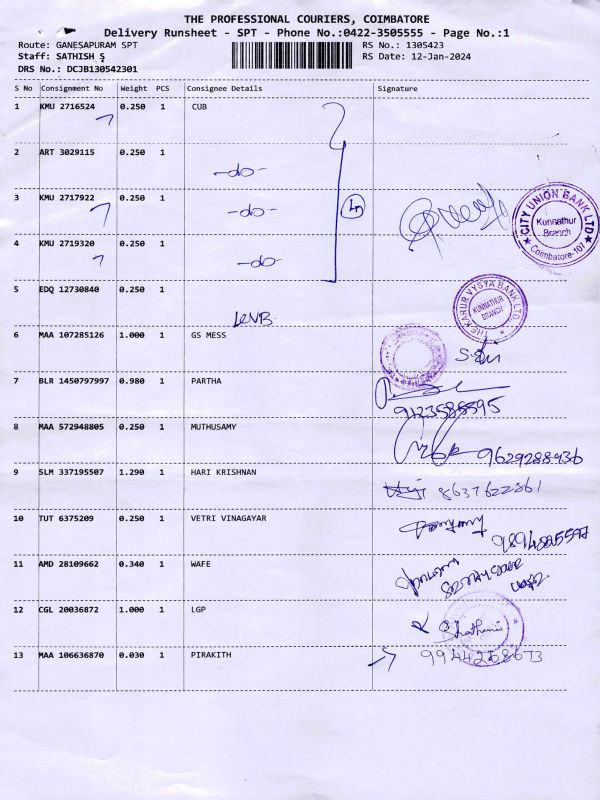 THE PROFESSIONAL COURIERS, COIMBATORE
Delivery Runsheet - SPT - Phone No.:0422-3505555 - Page No.:1
Route: GANESAPURAM SPT
RS No.: 1305423
Staff: SATHISH S
RS Date: 12-Jan-2024
DRS No.: DCJB130542301
S No Consignment No Weight PCS Consignee Details Signature
1 KMU 2716524 0.250 1 CUB
2 ART 3029115 0.250 1
-do-
3 KMU 2717922 0.250 1
-do-
4 KMU 2719320 0.250 1
-do-
CITY UNION BANK LTD
Kunnathur
Branch
Coimbatore-107
5 EDQ 12730840 0.250 1
KVB
THE KARUR VYSYA BANK LTD.
KUNNATHUR
BRANCH
6 MAA 107285126 1.000 1 GS MESS
7 BLR 1450797997 0.980 1 PARTHA
9423585595
8 MAA 572948805 0.250 1 MUTHUSAMY
9629288936
9 SLM 337195507 1.290 1 HARI KRISHNAN
8637622861
10 TUT 6375209 0.250 1 VETRI VINAGAYAR
11 AMD 28109662 0.340 1 WAFE
12 CGL 20036872 1.000 1 LGP
13 MAA 106636870 0.030 1 PIRAKITH
9944258673